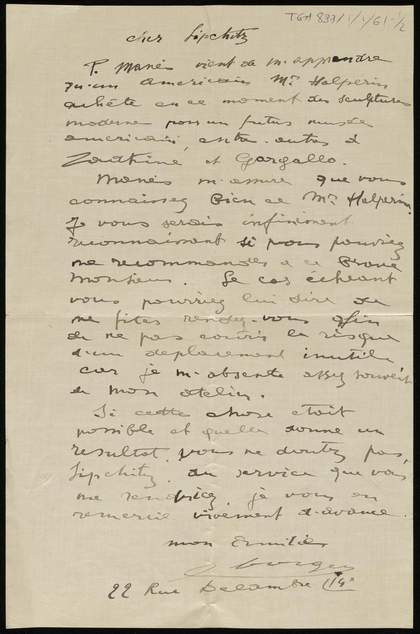 TGA 898/1/1/61-1/2
cher Lipchitz
P. Manès vient de m'apprendre
qu'un americain Mr Halperin
achète en ce moment des sculptures
moderne pour un futur musée
americain, entre autres à
Zadkine et Gargallo.
Manès m'assure que vous
connaissez bien ce Mr Halperin.
Je vous serais infiniment
reconnaissant si vous pouviez
me recommander a ce Brave
Monsieur. Le cas échéant
vous pourriez lui dire de
me rendez-vous afin
de ne pas courir le risque
d'un deplacement inutile
car je m'absente assez souvent
de mon atelier.
Si cette chose etait
possible et quelle donne un
resultat, vous ne doutez pas,
Lipchitz, du service que vous
me je vous en
remercie vivement d'avance.
mon
22 Rue Delambre (14e